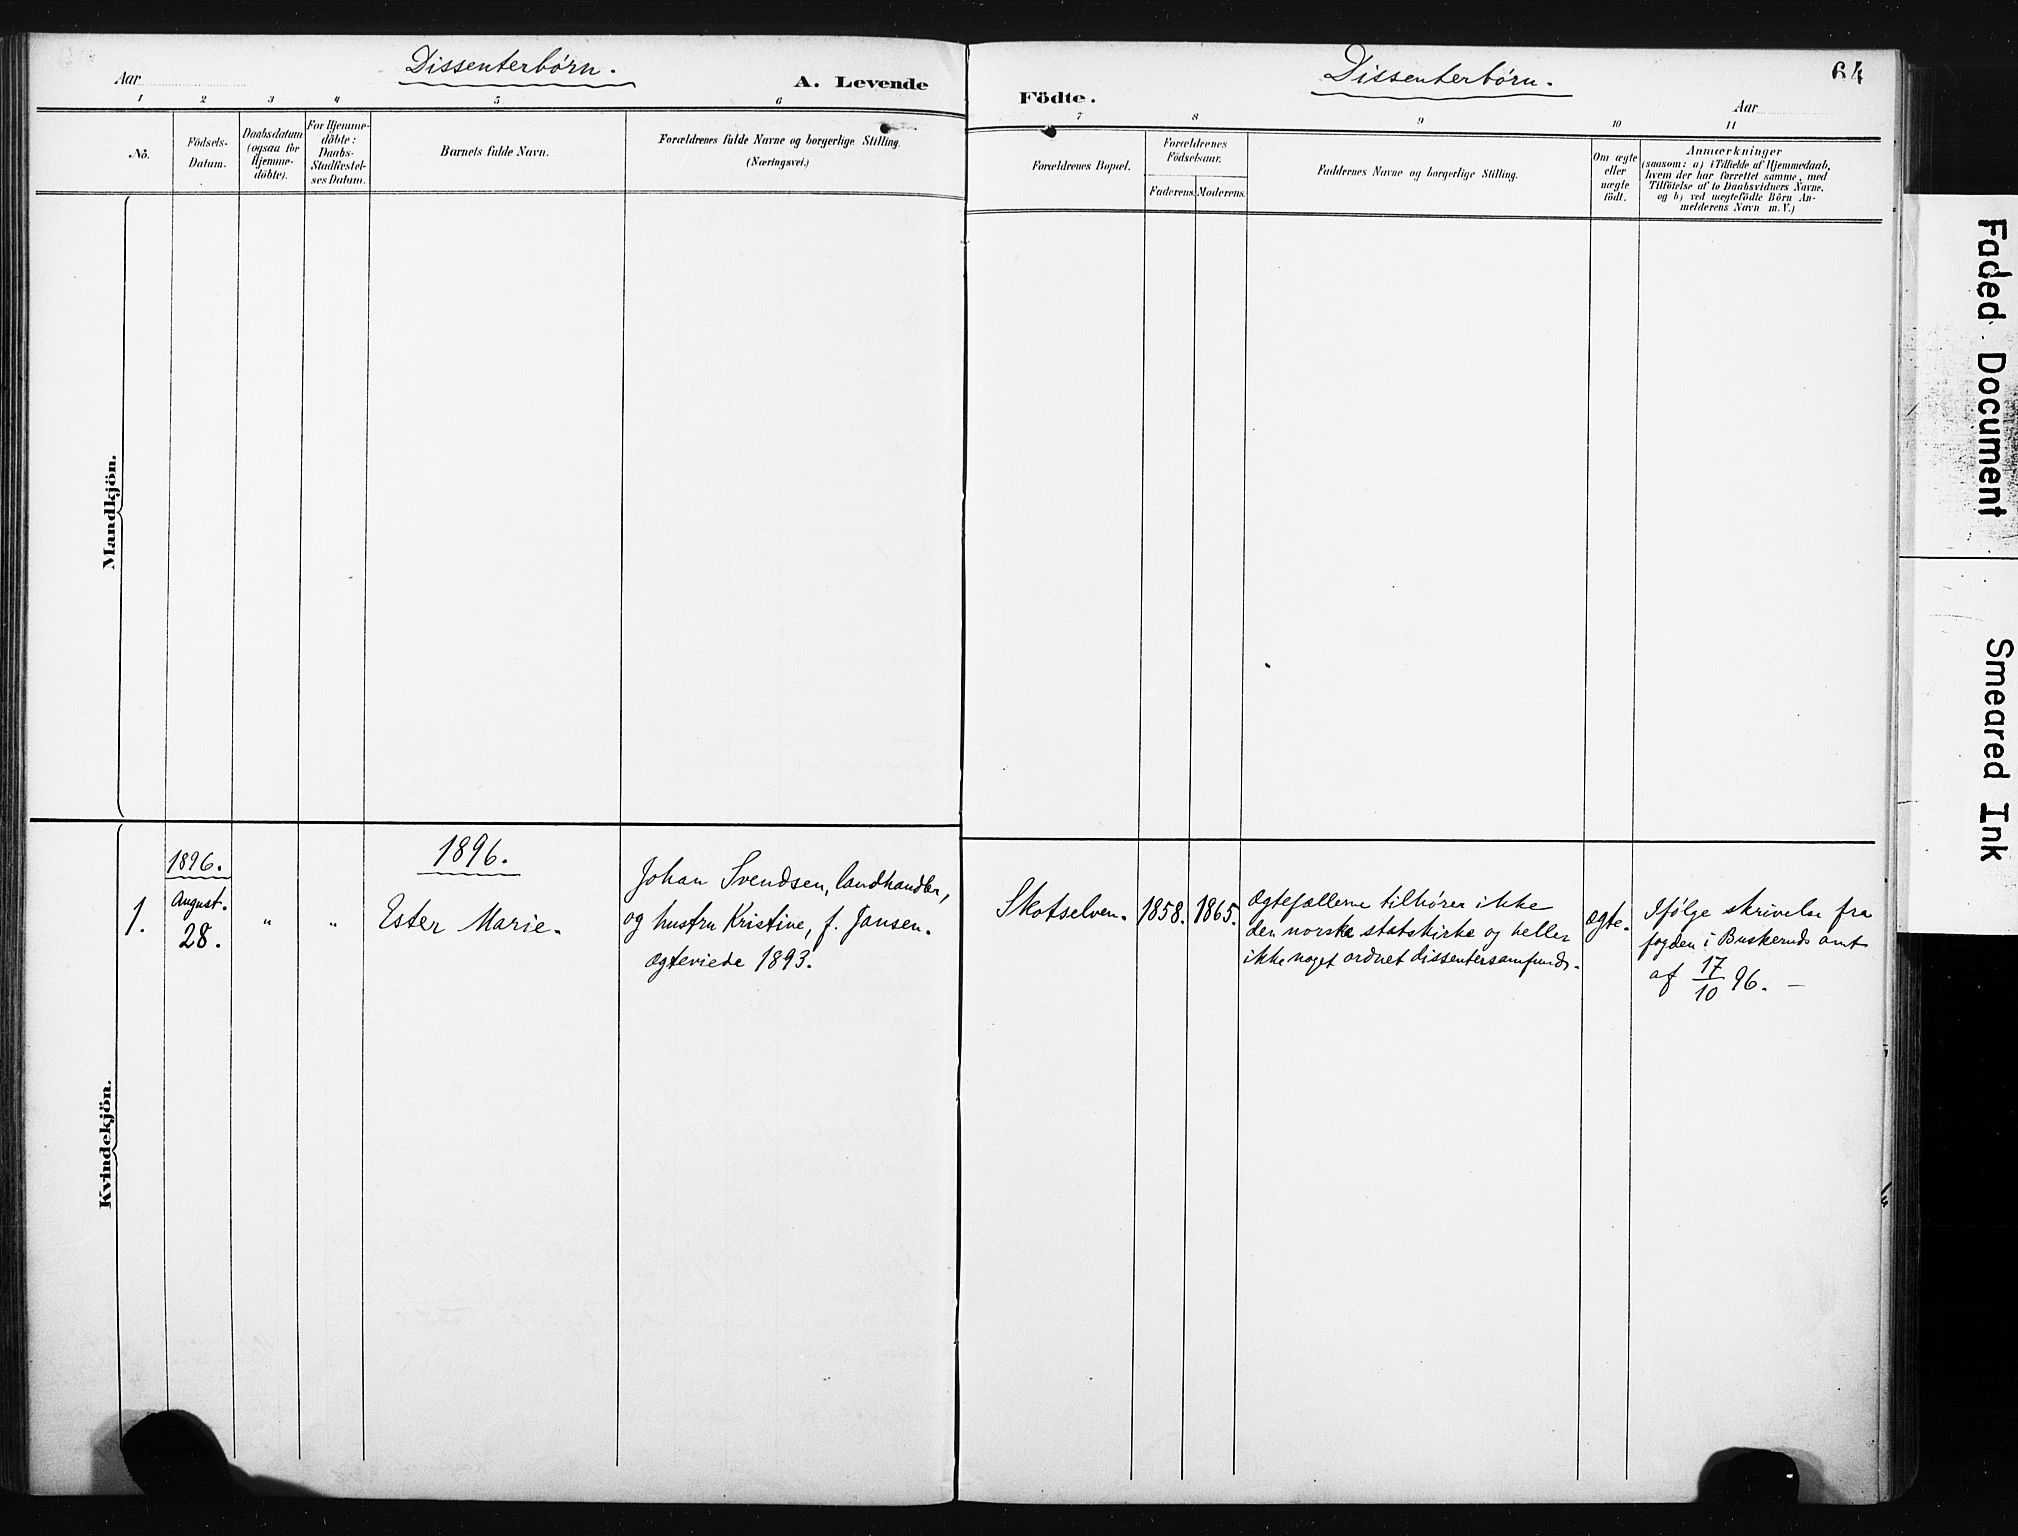 Dissenterbørn.
Aar
A. Levende
1 2 3 4 5 6
Nô.
Födsels-
Datum.
Daabsdatum
(ogsaa for
Hjemme-
döbte).
For Hjemme-
döbte:
Daabs-
Stadfestel-
ses Datum.
Barnets fulde Navn.
Forældrenes fulde Navne og borgerlige Stilling.
(Næringsvei.)
Mandkjön.
1896.
1896.
1.
August.
28.
"
"
Ester Marie.
Johan Svendsen, landhandler,
og hustru Kristine, f. Jansen.
Ægteviede 1893.
Kvindekjön.
Dissenterbørn.
64
Födte.
Aar
7 8 9 10 11
Forældrenes Bopæl.
Forældrenes
Födselsaar.
Faderens. Moderens.
Faddernes Navne og borgerlige Stilling.
Om ægte
eller
uægte
födt.
Anmærkninger
(saasom: a) i Tilfælde af Hjemmedaab,
hvem der har forrettet samme, med
Tilföielse af to Daabsvidners Navne.
og b) ved uægtefödte Börn An-
melderens Navn m. V.)
Skotselven.
1858.
1865.
Ægtefællerne tilhører ikke
den norske statskirke og heller
ikke noget ordnet dissentersamfund.
ægte.
Ifølge skrivelse fra
fogden i Buskeruds amt
af 17/10 96. –
Faded Document
Smeared Ink